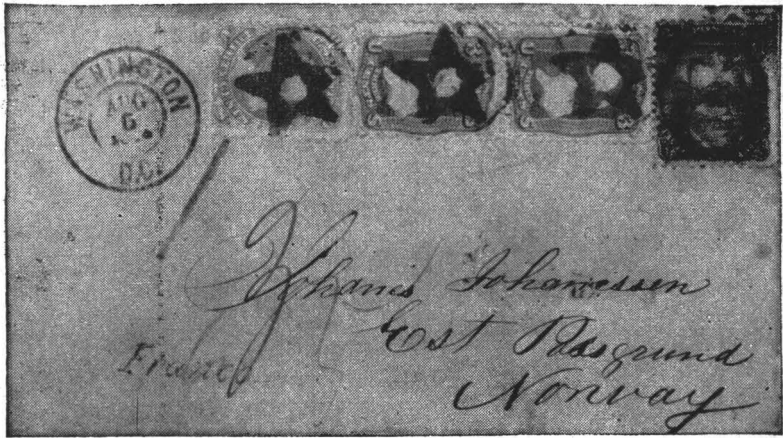 WASHINGTON
AUG
5
D.C.
3
3
Johanis Johanessen
Est Porsgrund
Norway
Franco